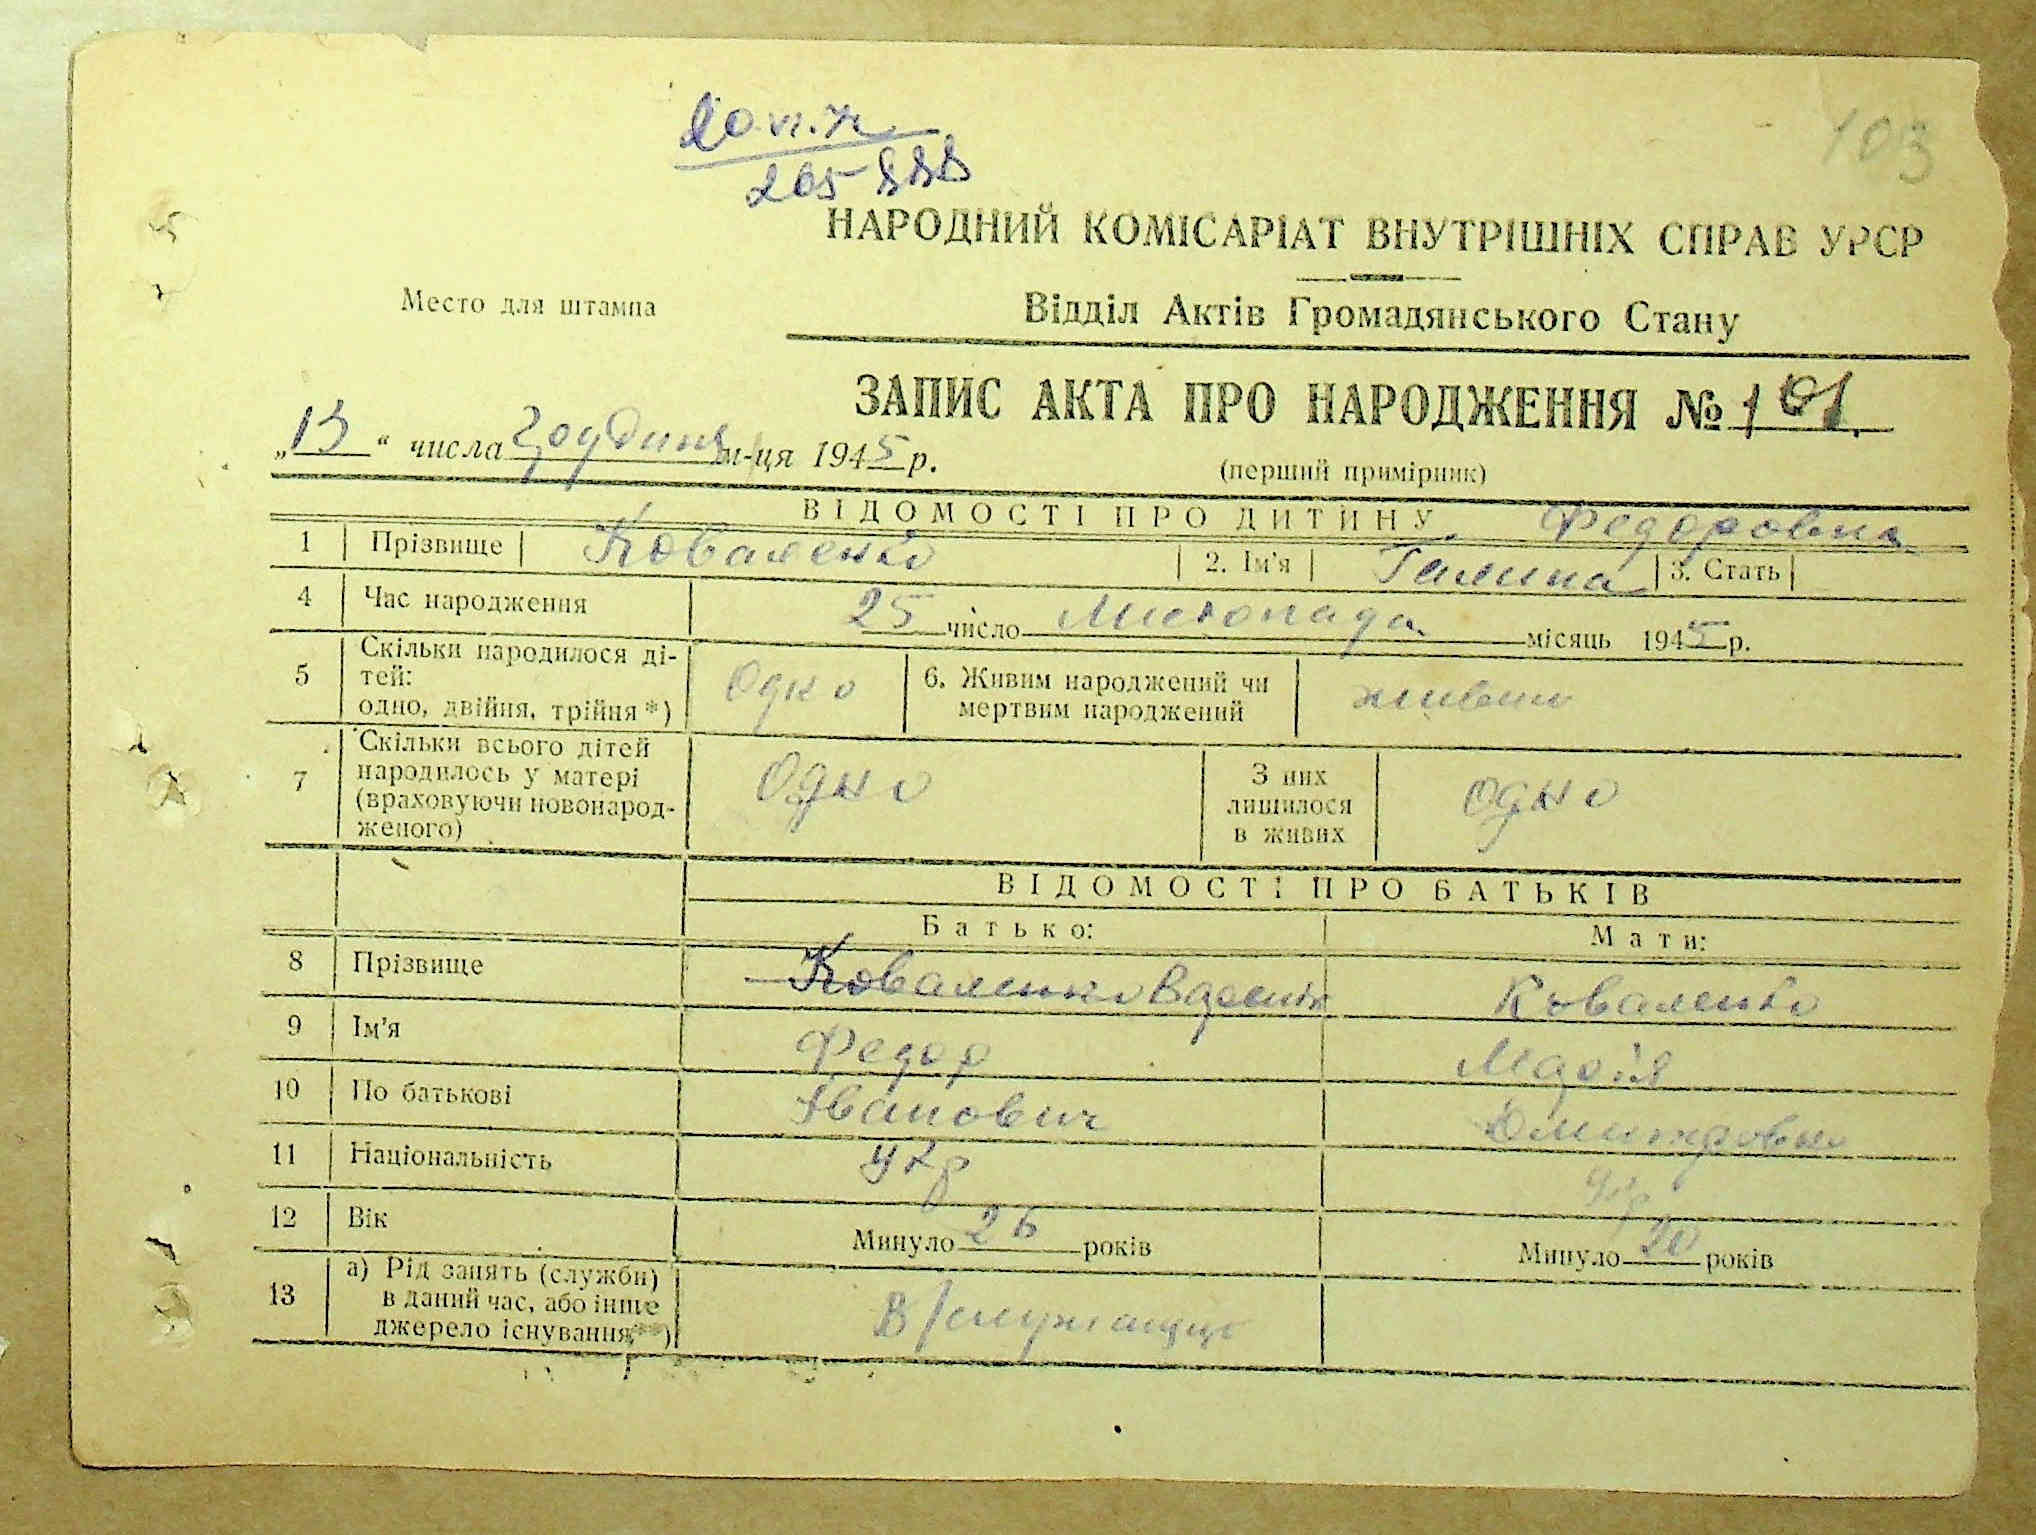 103
20.VI.
НАРОДНИЙ КОМІСАРІАТ ВНУТРІШНІХ СПРАВ УРСР
Место для штампа
Відділ Актів Громадянського Стану
ЗАПИС АКТА ПРО НАРОДЖЕННЯ № 101
„13“ числа Грудня м-ця 1945 р.
(перший примірник)
ВІДОМОСТІ ПРО ДИТИНУ Федоровна
1 Прізвище Коваленко 2. Ім'я Галина 3. Стать
4 Час народження 25 число Листопада місяць 1945 р.
5 Скільки народилося ді-
тей:
одно, двійня, трійня *) Одно 6. Живим народжений чи
мертвим народжений живим
7 Скільки всього дітей
народилось у матері
(враховуючи новонарод-
женого) Одно З них
лишилося
в живих одно
ВІДОМОСТІ ПРО БАТЬКІВ
Батько: Мати:
8 Прізвище Коваленко Коваленко
9 Ім'я Федор Марія
10 По батькові Іванович Дмитровна
11 Національність укр укр
12 Вік Минуло 26 років Минуло 20 років
13 а) Рід занять (служби)
в даний час, або інше
джерело існування **) В/служащий